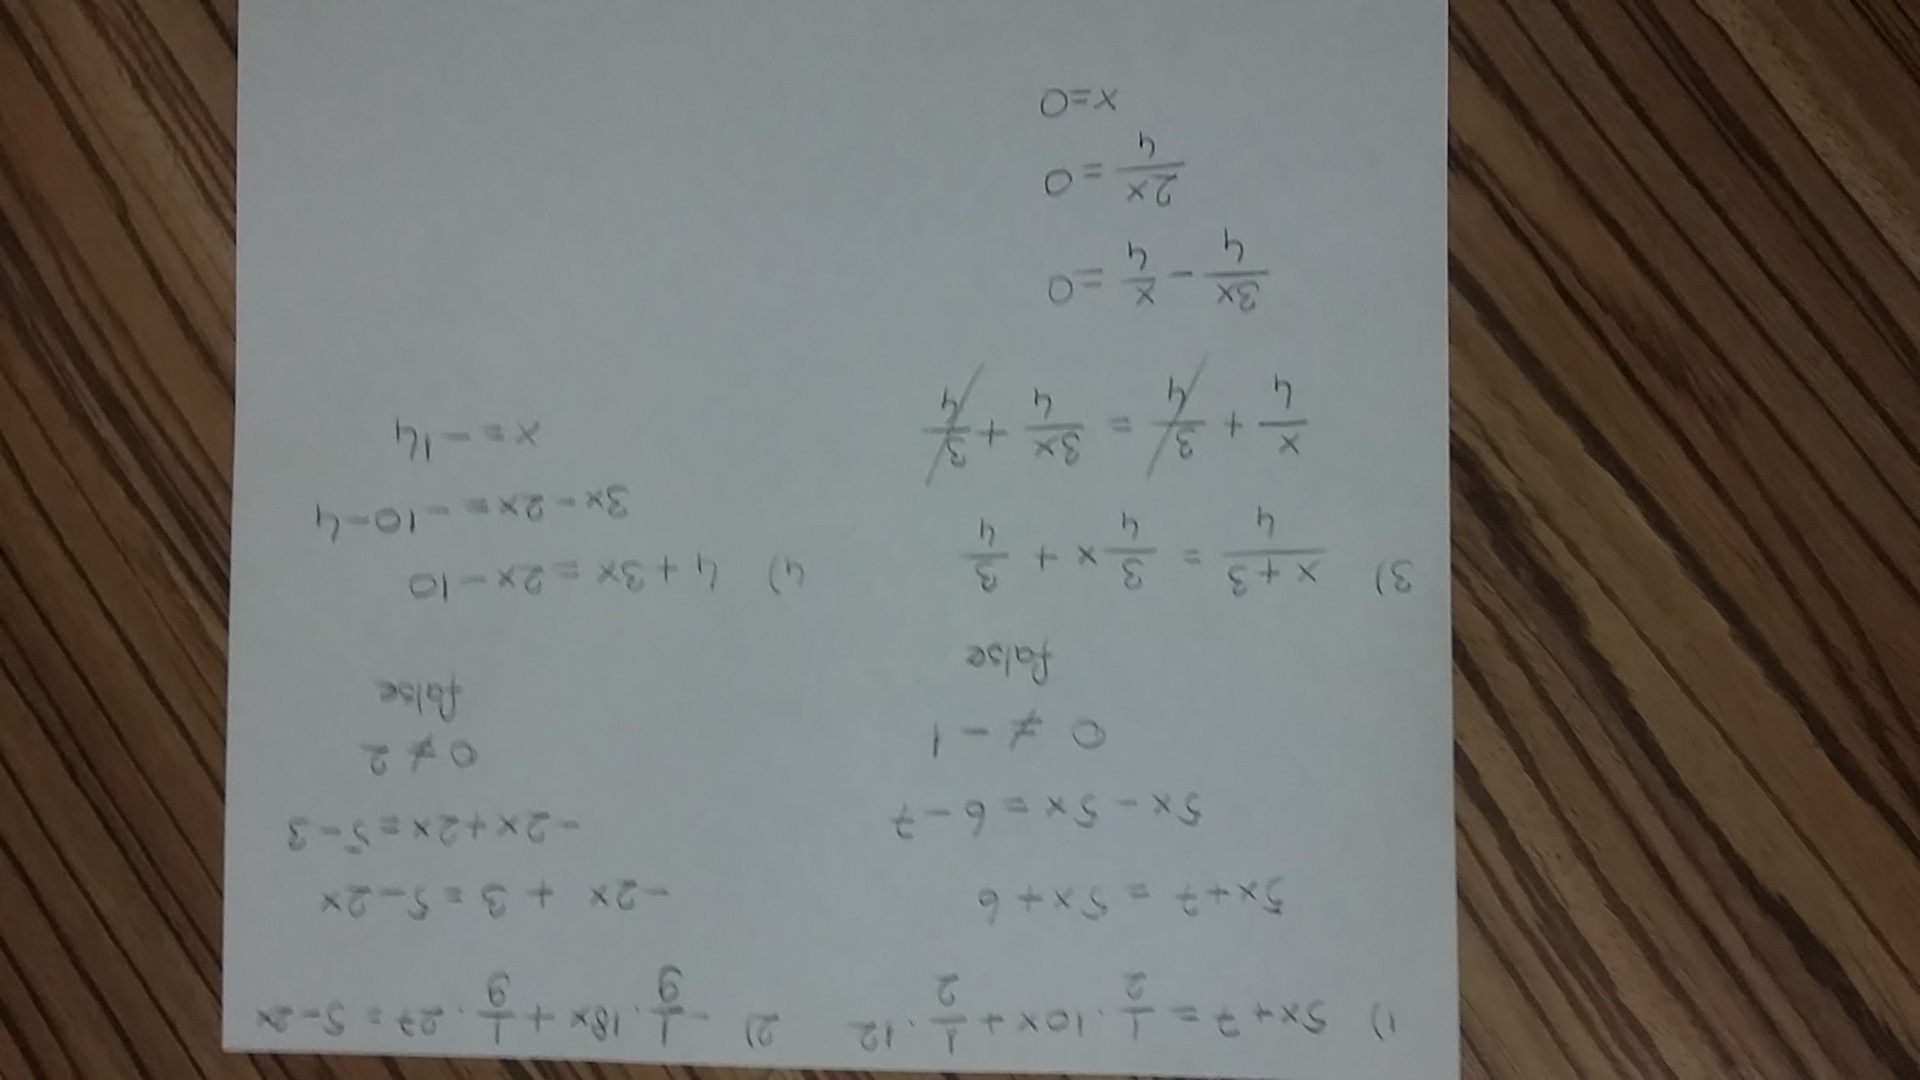 1) 5x+7 = 1/2 · 10x + 1/2 · 12
5x+7 = 5x+6
5x - 5x = 6-7
0 ≠ -1
false
2) -1/9 · 18x + 1/9 · 27 = 5-2x
-2x + 3 = 5-2x
-2x+2x = 5-3
0 ≠ 2
false
3) x+3/4 = 3/4 x + 3/4
x/4 + 3/4 = 3x/4 + 3/4
3x/4 - x/4 = 0
2x/4 = 0
x=0
4) 4+3x = 2x-10
3x-2x = -10-4
x = -14